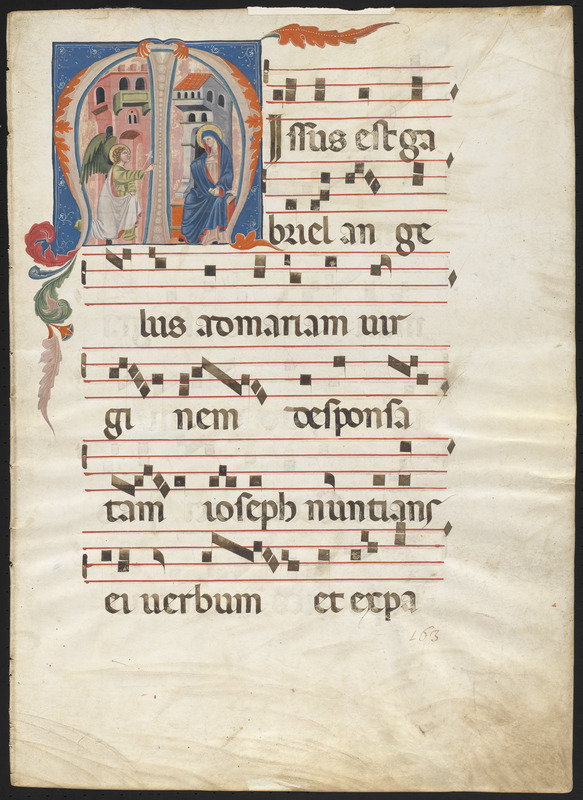 MIssus est ga
briel an ge
lus ad mariam uir
gi nem desponsa
tam ioseph nuntians
ei uerbum et expa
163